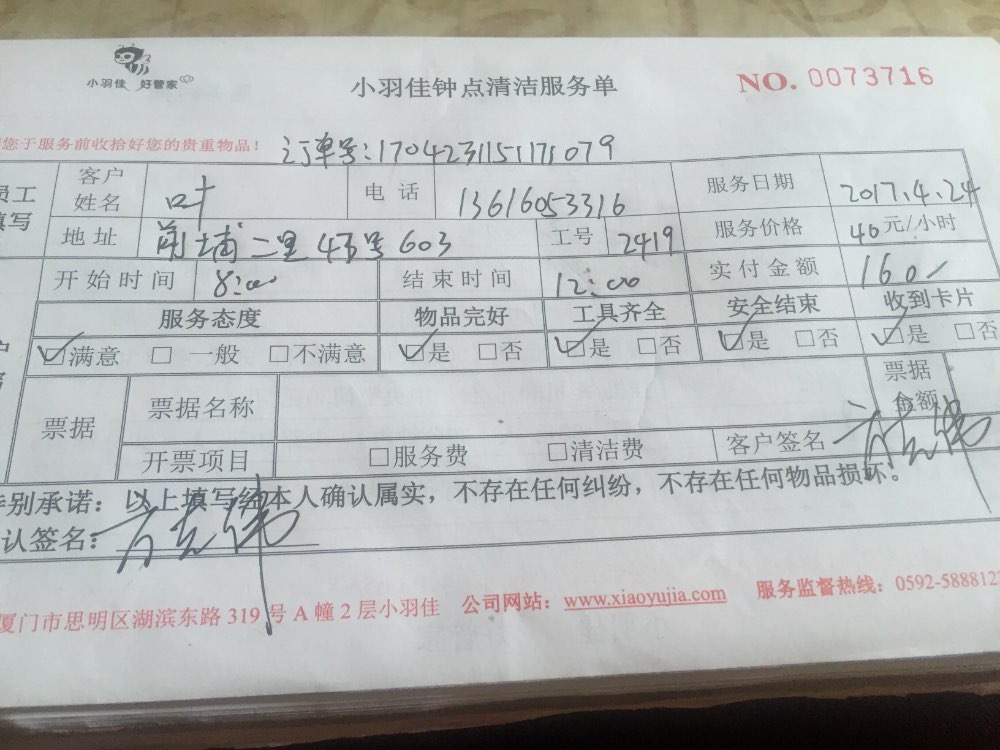 小羽佳 好管家
小羽佳钟点清洁服务单
NO. 0073716
您于服务前收拾好您的贵重物品！
订单号:1704231151171079
员工填写
客户姓名 叶 电话 13616053316 服务日期 2017.4.24
地址 前埔二里45号603 工号 2419 服务价格 40元/小时
开始时间 8:00 结束时间 12:00 实付金额 160/
服务态度 物品完好 工具齐全 安全结束 收到卡片
☑满意 □一般 □不满意 ☑是 □否 ☑是 □否 ☑是 □否 ☑是 □否
票据 票据名称 票据金额
开票项目 □服务费 □清洁费 客户签名
特别承诺：以上填写经本人确认属实，不存在任何纠纷，不存在任何物品损坏。
认签名：
厦门市思明区湖滨东路 319 号 A 幢 2 层小羽佳 公司网站：www.xiaoyujia.com 服务监督热线：0592-5888122